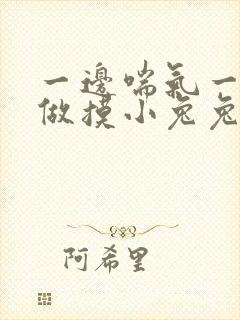 一邊喘氣一
做摸小兔兔
阿希里